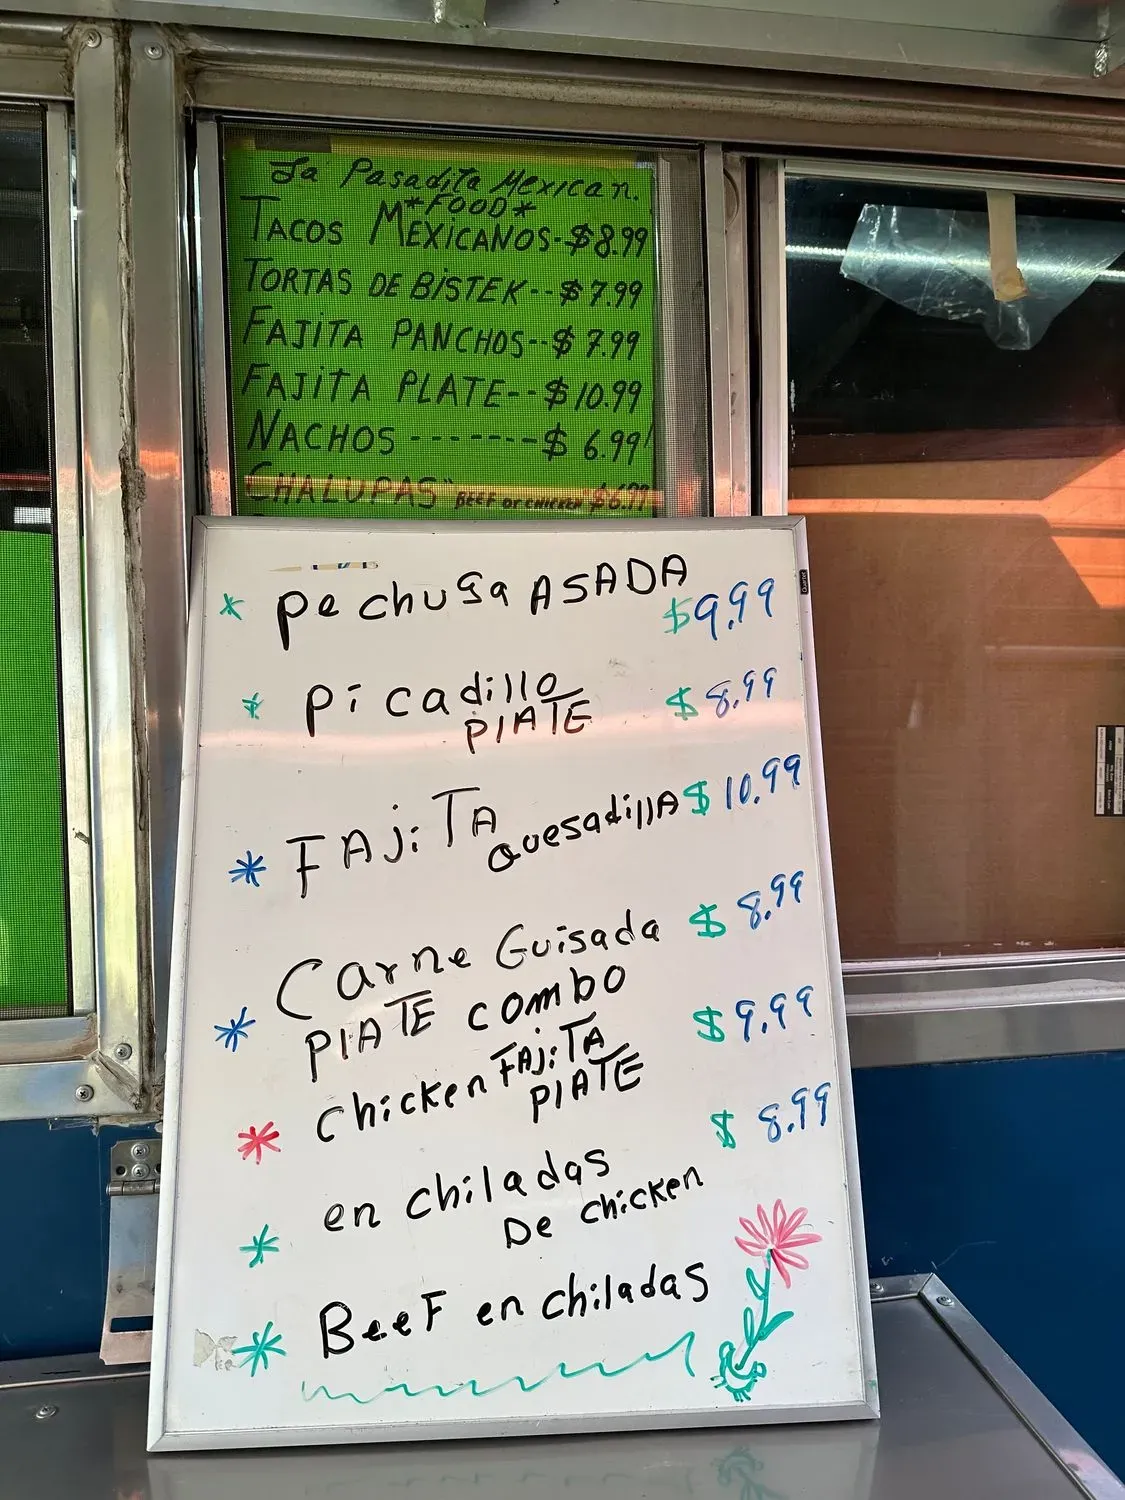 La Pasadita Mexican.
*FOOD*
TACOS MEXICANOS-$8.99
TORTAS DE BISTEK--$7.99
FAJITA PANCHOS--$7.99
FAJITA PLATE--$10.99
NACHOS -------$6.99
CHALUPAS "BEEF or CHICKEN" $6.99
* pechuga ASADA $9.99
* Picadillo $8.99
PlATE
* FAjiTA Quesadilla $10.99
* Carne Guisada $8.99
PlATE combo
* chicken FAjiTA $9.99
PlATE
* enchiladas $8.99
De chicken
* BeeF enchiladas